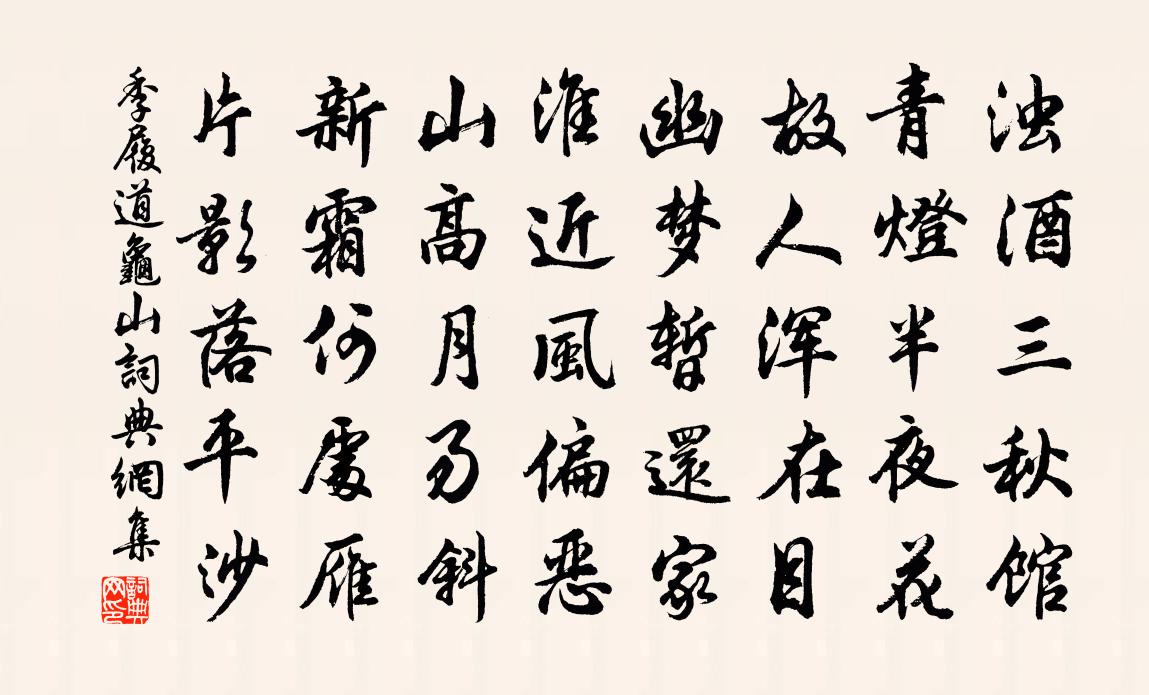 浊酒三秋馆
青燈半夜花
故人浑在目
幽梦暫還家
淮近風偏恶
山高月易斜
新霜何處雁
片影落平沙
季履道龜山詞典網集
詞典网印